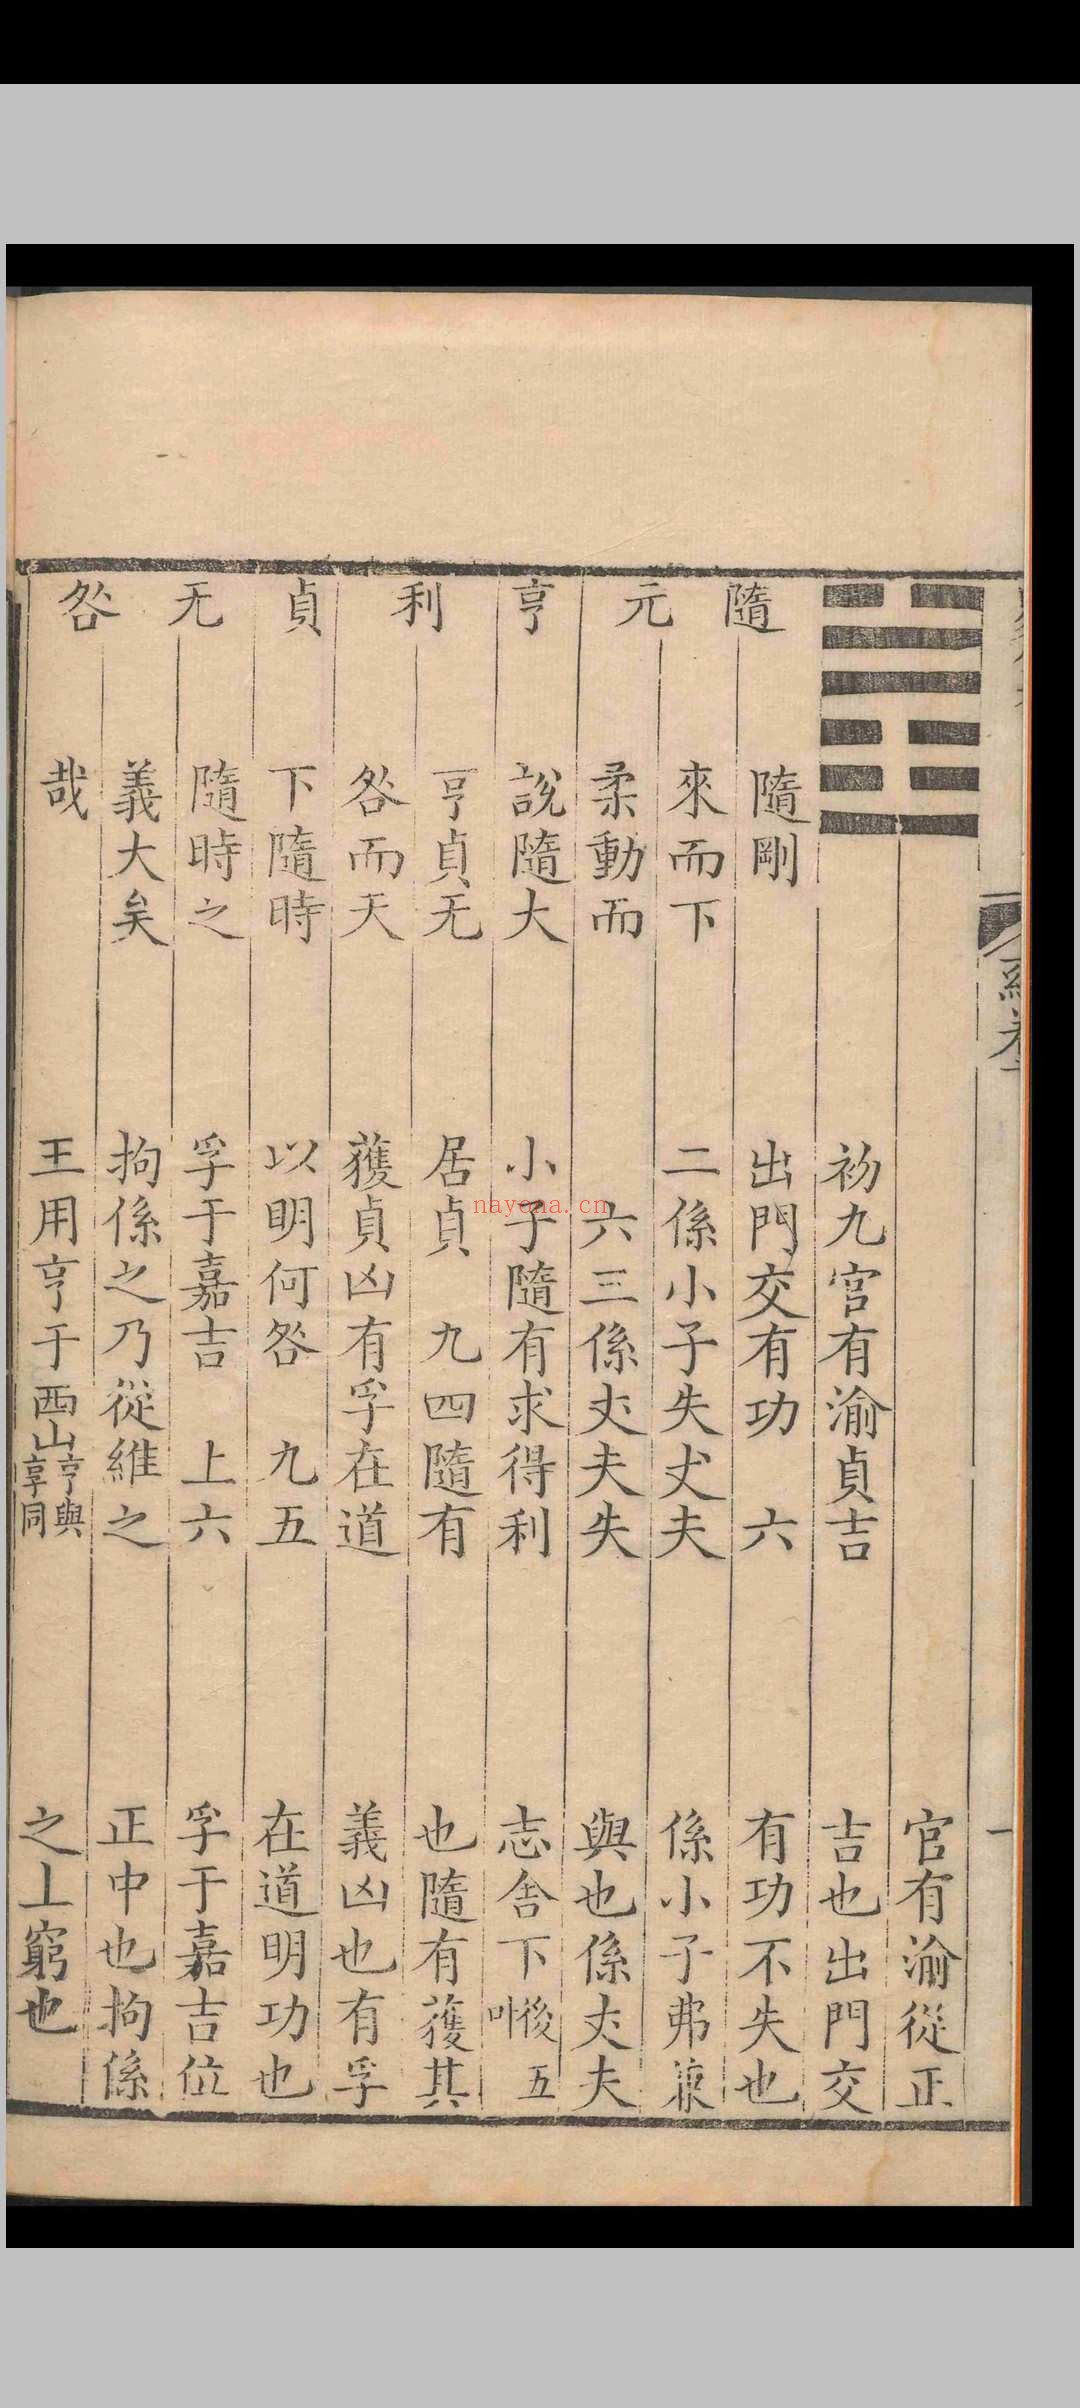 隨元亨利貞无咎
隨剛
來而下
柔動而
說隨大
亨貞无
咎而天
下隨時
隨時之
義大矣
哉
初九官有渝貞吉
出門交有功　六
二係小子失丈夫
六三係丈夫失
小子隨有求得利
居貞　九四隨有
獲貞凶有孚在道
以明何咎　九五
孚于嘉吉　上六
拘係之乃從維之
王用亨于西山亨與享同
官有渝從正
吉也出門交
有功不失也
係小子弗兼
與也係丈夫
志舍下後五叶
也隨有獲其
義凶也有孚
在道明功也
孚于嘉吉位
正中也拘係
之上窮也
nayona.cn